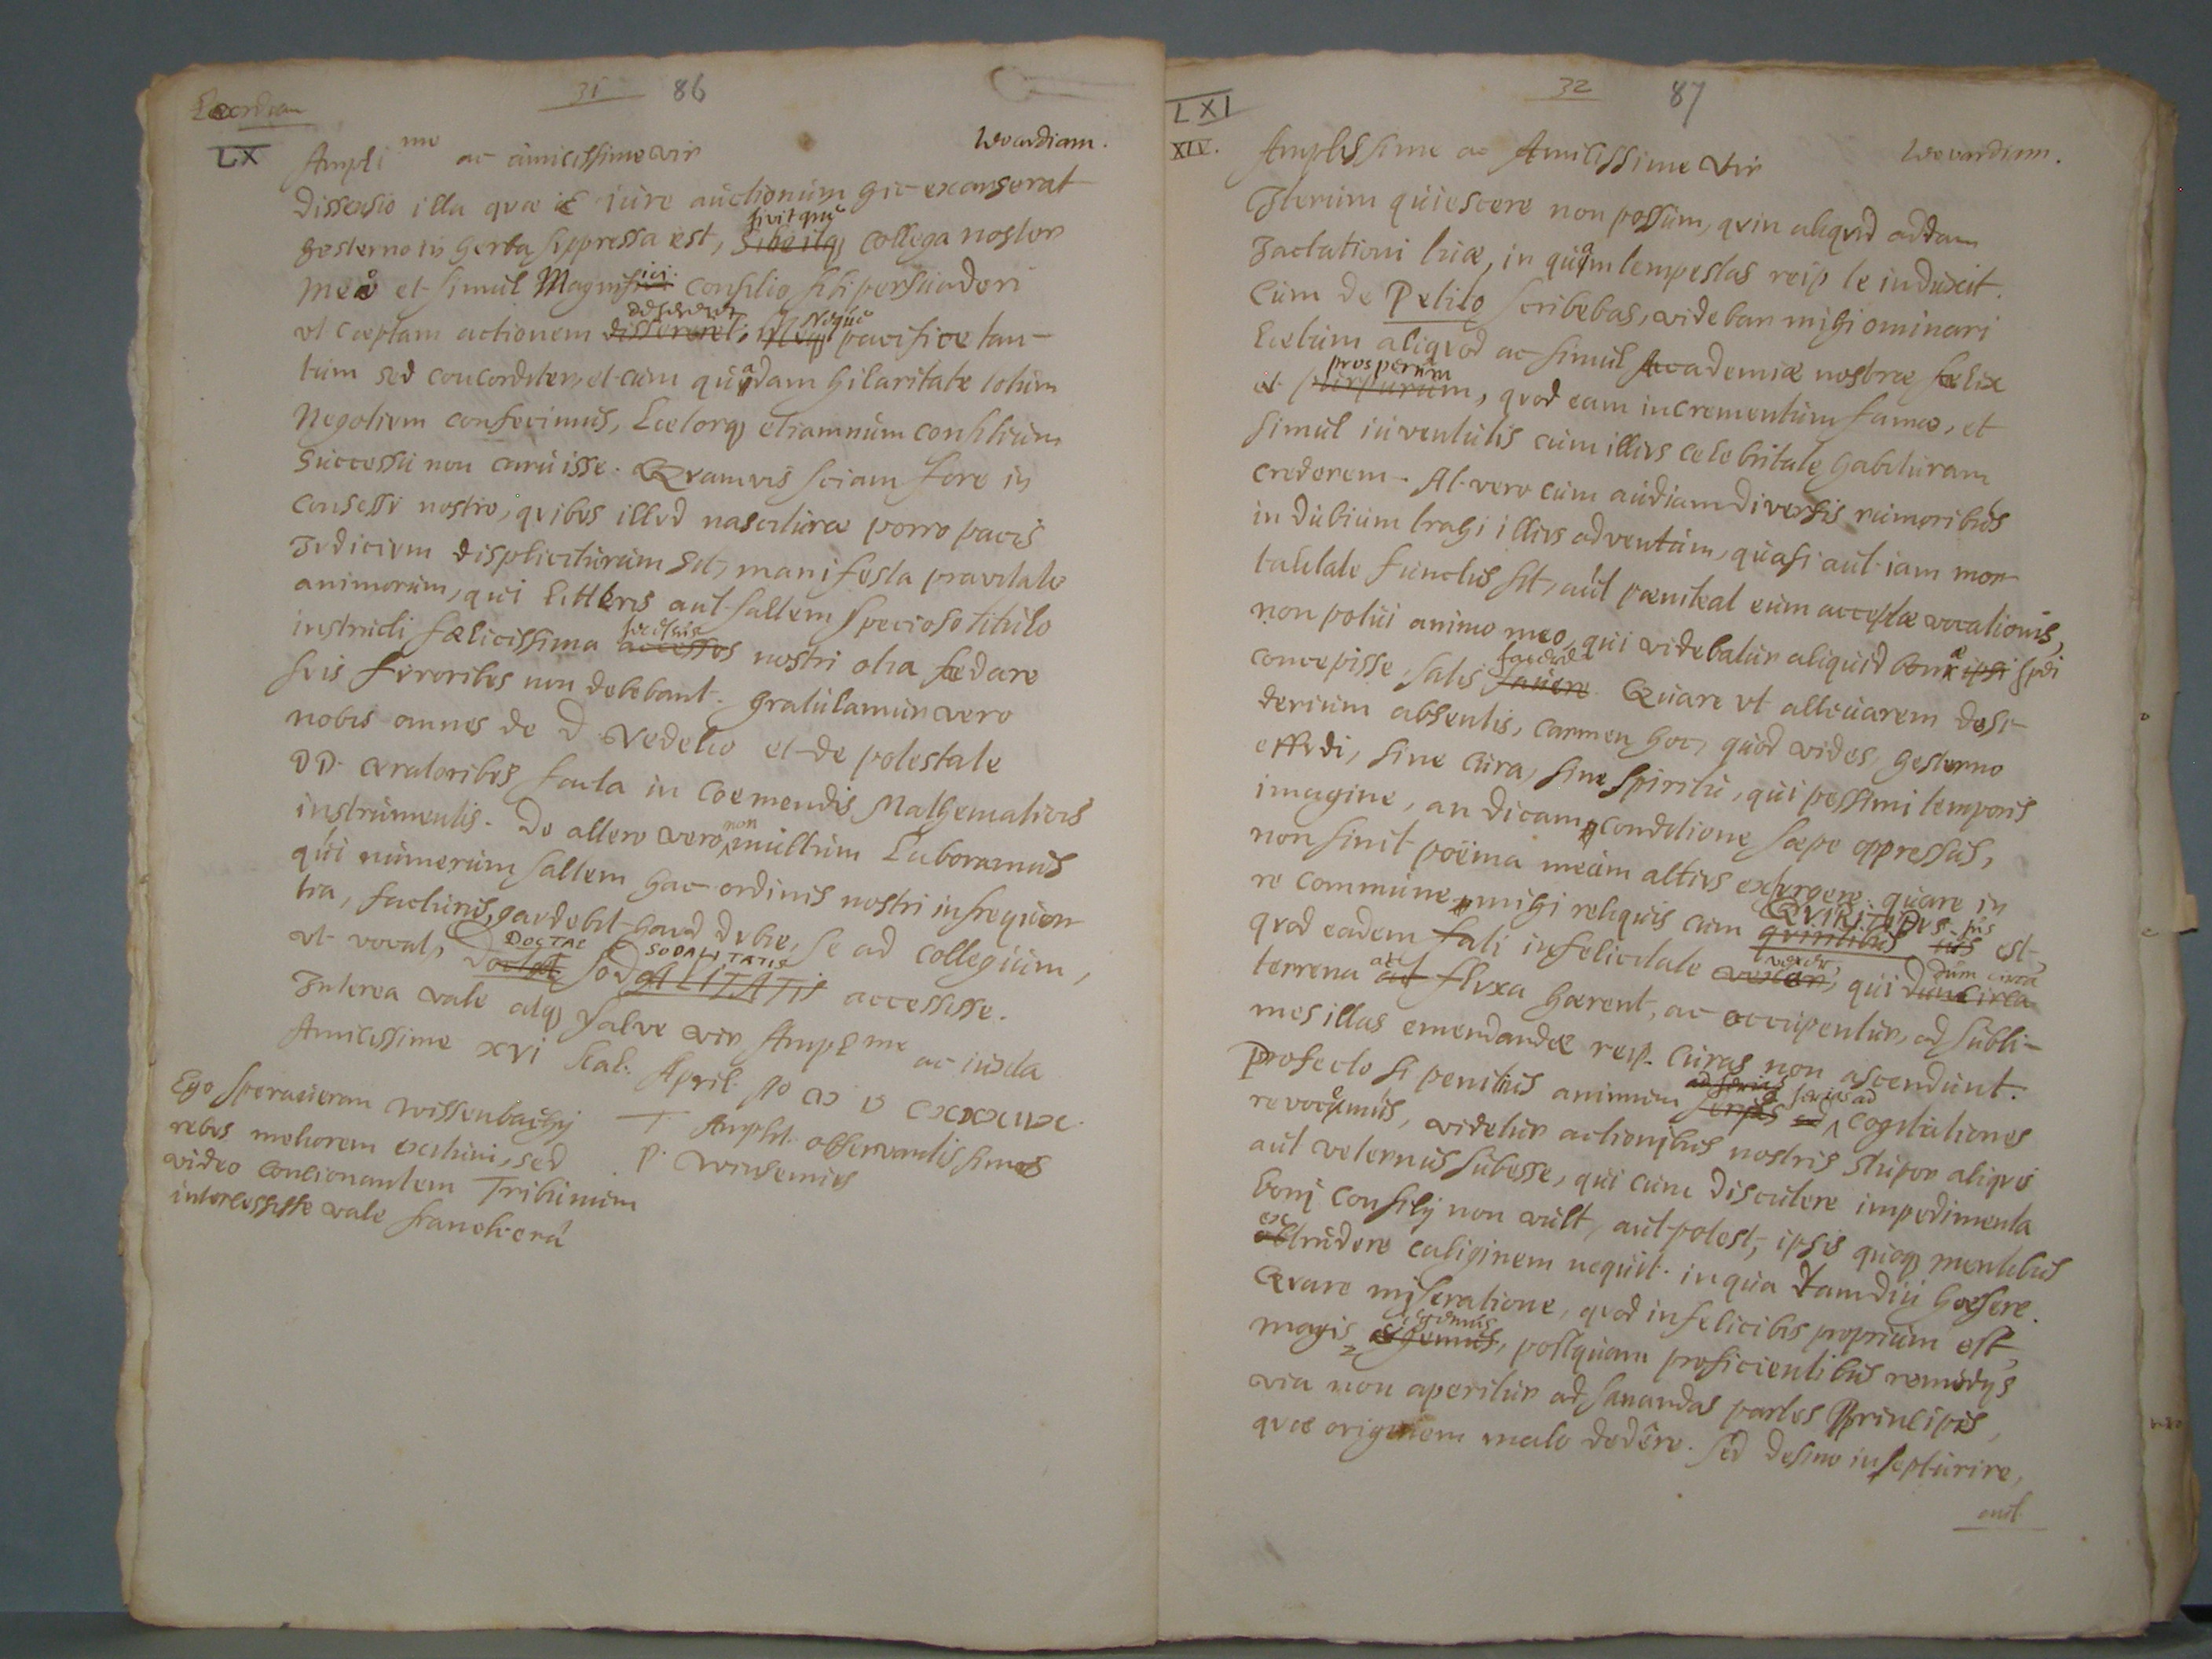 31 86
Leoverdiam
LX
Leoardiam.
Ampli me ac amicissime vir
Dissensio illa quæ iure auctionum hic exarserat
hesterno in herba suppressa est, sivitque collega noster
meo et simul Magnifici consilio sibi persuaderi
vt cæptam actionem desereret, Neque pacifice tan-
tum sed concorditer, et cum quadam hilaritate totum
Negotium confecimus, Lætorq etiamnum consilium
successu non caruisse. Quamvis sciam fore in
consessu nostro, quibus illud nascituræ porro pacis
Judicium displiciturum sit, manifesta pravitate
animorum, qui litteris aut saltem specioso titulo
instructi fœlicissima nostri otia fœdare
suis furoribus non debebant. Gratulamur vero
nobis omnes de D. Vedelio et de potestate
DD. Curatoribus facta in Coemendis Mathematicis
instrumentis. De altero vero non multum Laboramus
qui numerum saltem hac ordinis nostri infrequen-
tia, facturus, gaudebit haud dubie, se ad collegium,
vt vocat, DOCTAE SODALITATIS accessisse.
Interea vale atq salve vir Ampl me ac iuxta
Amicissime XVI Kal. April.
T. Ampl. observantissimus
P. Winsemius
Ego speraveram Wissenbachij
rebus meliorem exitum, sed
video concionantem Tribunum
intercessisse vale Franekeræ
32 87
LXI
XIV.
Leovardiam.
Amplissime ac Amicissime Vir
Iterum quiescere non possum, quin aliquid addam
Jactationi tuæ, in quam tempestas reip te induxit.
Cum de Petito scribebas, videbar mihi ominari
Lætum aliquod ac simul Academiæ nostræ felix
et prosperum, quod eam incrementum famæ, et
simul iuventutis cum illius celebritate habituram
crederem. At vero cum audiam diversis rumoribus
in dubium trahi illius adventum, quasi aut iam mor-
talitate functus sit, aut pœniteat eum acceptæ vocationis,
non potui animo meo, qui videbatur aliquid bonæ spei
concepisse satis favere. Quare vt allevarem desi-
derium absentis, carmen hoc, quod vides, hesterno
effudi, sine cura, sine spiritu, qui pessimi temporis
imagine, an dicam conditione sæpe oppressus,
non sinit poëma meum altius exsurgere. quare in
re commune mihi reliquis cum QVIRITIBVS ius est,
quod eadem fati infelicitate vexer, qui dum circa
terrena ac fluxa hærent, ac occupentur, ad subli-
mes illas emendandæ reip. curas non ascendunt.
Profecto si penitius animum serias ad cogitationes
revocemus, videtur actionibus nostris stupor aliquis
aut veternus subesse, qui cum discutere impedimenta
boni consilij non vult, aut potest, ipsis quoq mentibus
extrudere caliginem nequit. in qua tamdiu hæsere.
Quare miseratione, quod infelicibus proprium est,
magis egemus, postquam proficientibus remedijs
via non aperitur ad sanandas partes Principis,
quæ originem malo dedêre. Sed desino insepturire,
aut